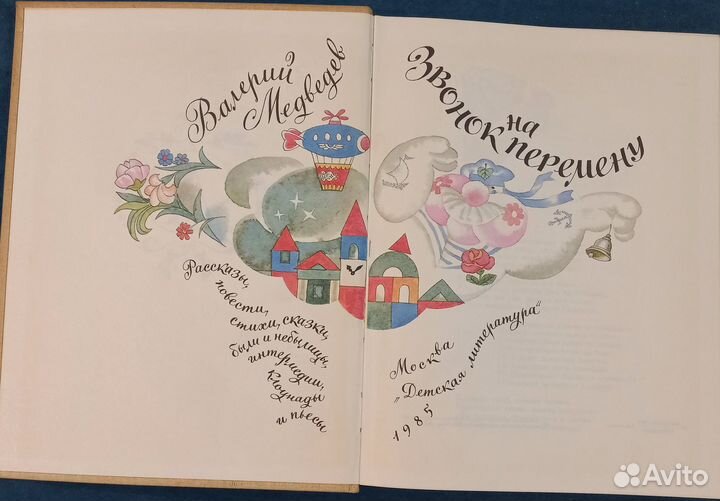 Валерий
Медведев
Звонок
на
перемену
Рассказы,
повести,
стихи, сказки,
были и небылицы,
интермедии,
клоунады
и пьесы
Москва
„Детская литература“
1985
Avito